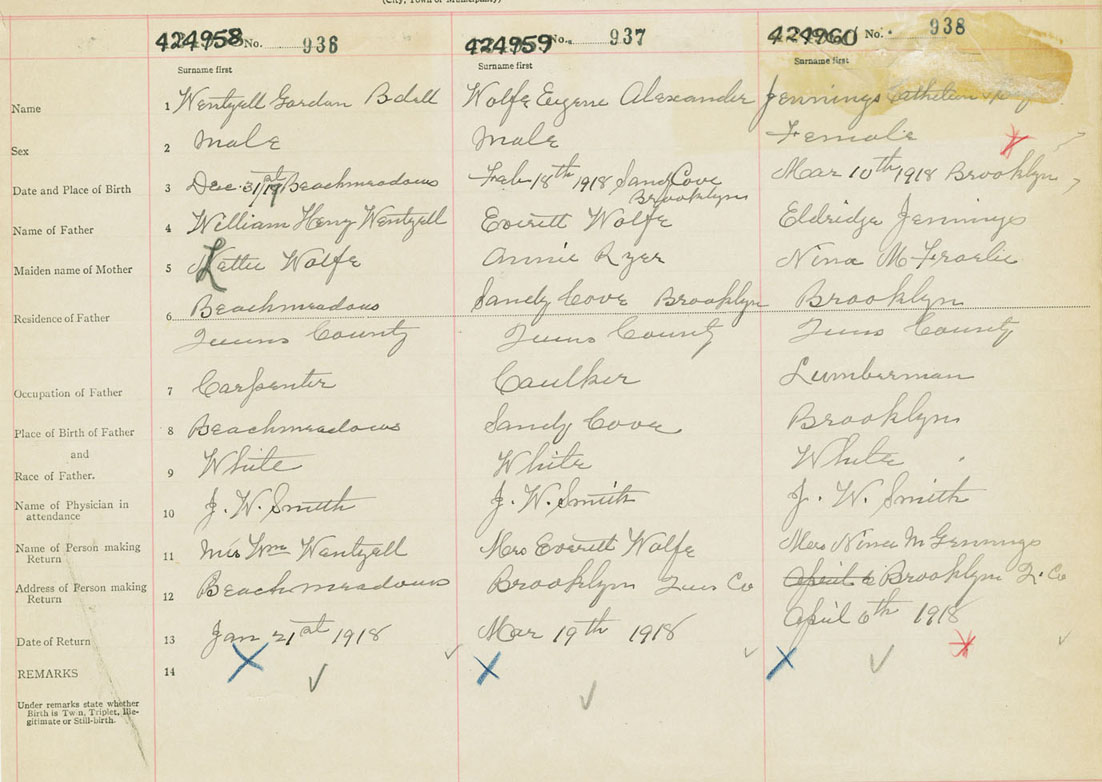 (City, Town or Municipality)
424958 No. 936
424959 No. 937
424960 No. 938
Surname first
Surname first
Surname first
Name 1 Wentzell Gordan Bdell Wolfe Eugene Alexander Jennings
Sex 2 Male Male Female
Date and Place of Birth 3 Dec 31st/17 Beachmeadows Feb 18th 1918 Sandy Cove Mar 10th 1918 Brooklyn
Brooklyn
Name of Father 4 William Henry Wentzell Everett Wolfe Eldridge Jennings
Maiden name of Mother 5 Lettie Wolfe Annie Ryer Nina M
Residence of Father 6 Beachmeadows Sandy Cove Brooklyn Brooklyn
County County County
Occupation of Father 7 Carpenter Caulker Lumberman
Place of Birth of Father 8 Beachmeadows Sandy Cove Brooklyn
and
Race of Father. 9 White White White
Name of Physician in
attendance 10 J. W. Smith J. W. Smith J. W. Smith
Name of Person making
Return 11 Mrs Wm Wentzell Mrs Everett Wolfe Mrs Nina M Jennings
Address of Person making
Return 12 Beachmeadows Brooklyn Co April 6 Brooklyn Q. Co
Date of Return 13 Jan 21st 1918 Mar 19th 1918 April 6th 1918
REMARKS 14
Under remarks state whether
Birth is Twin, Triplet, Ille-
gitimate or Still-birth.